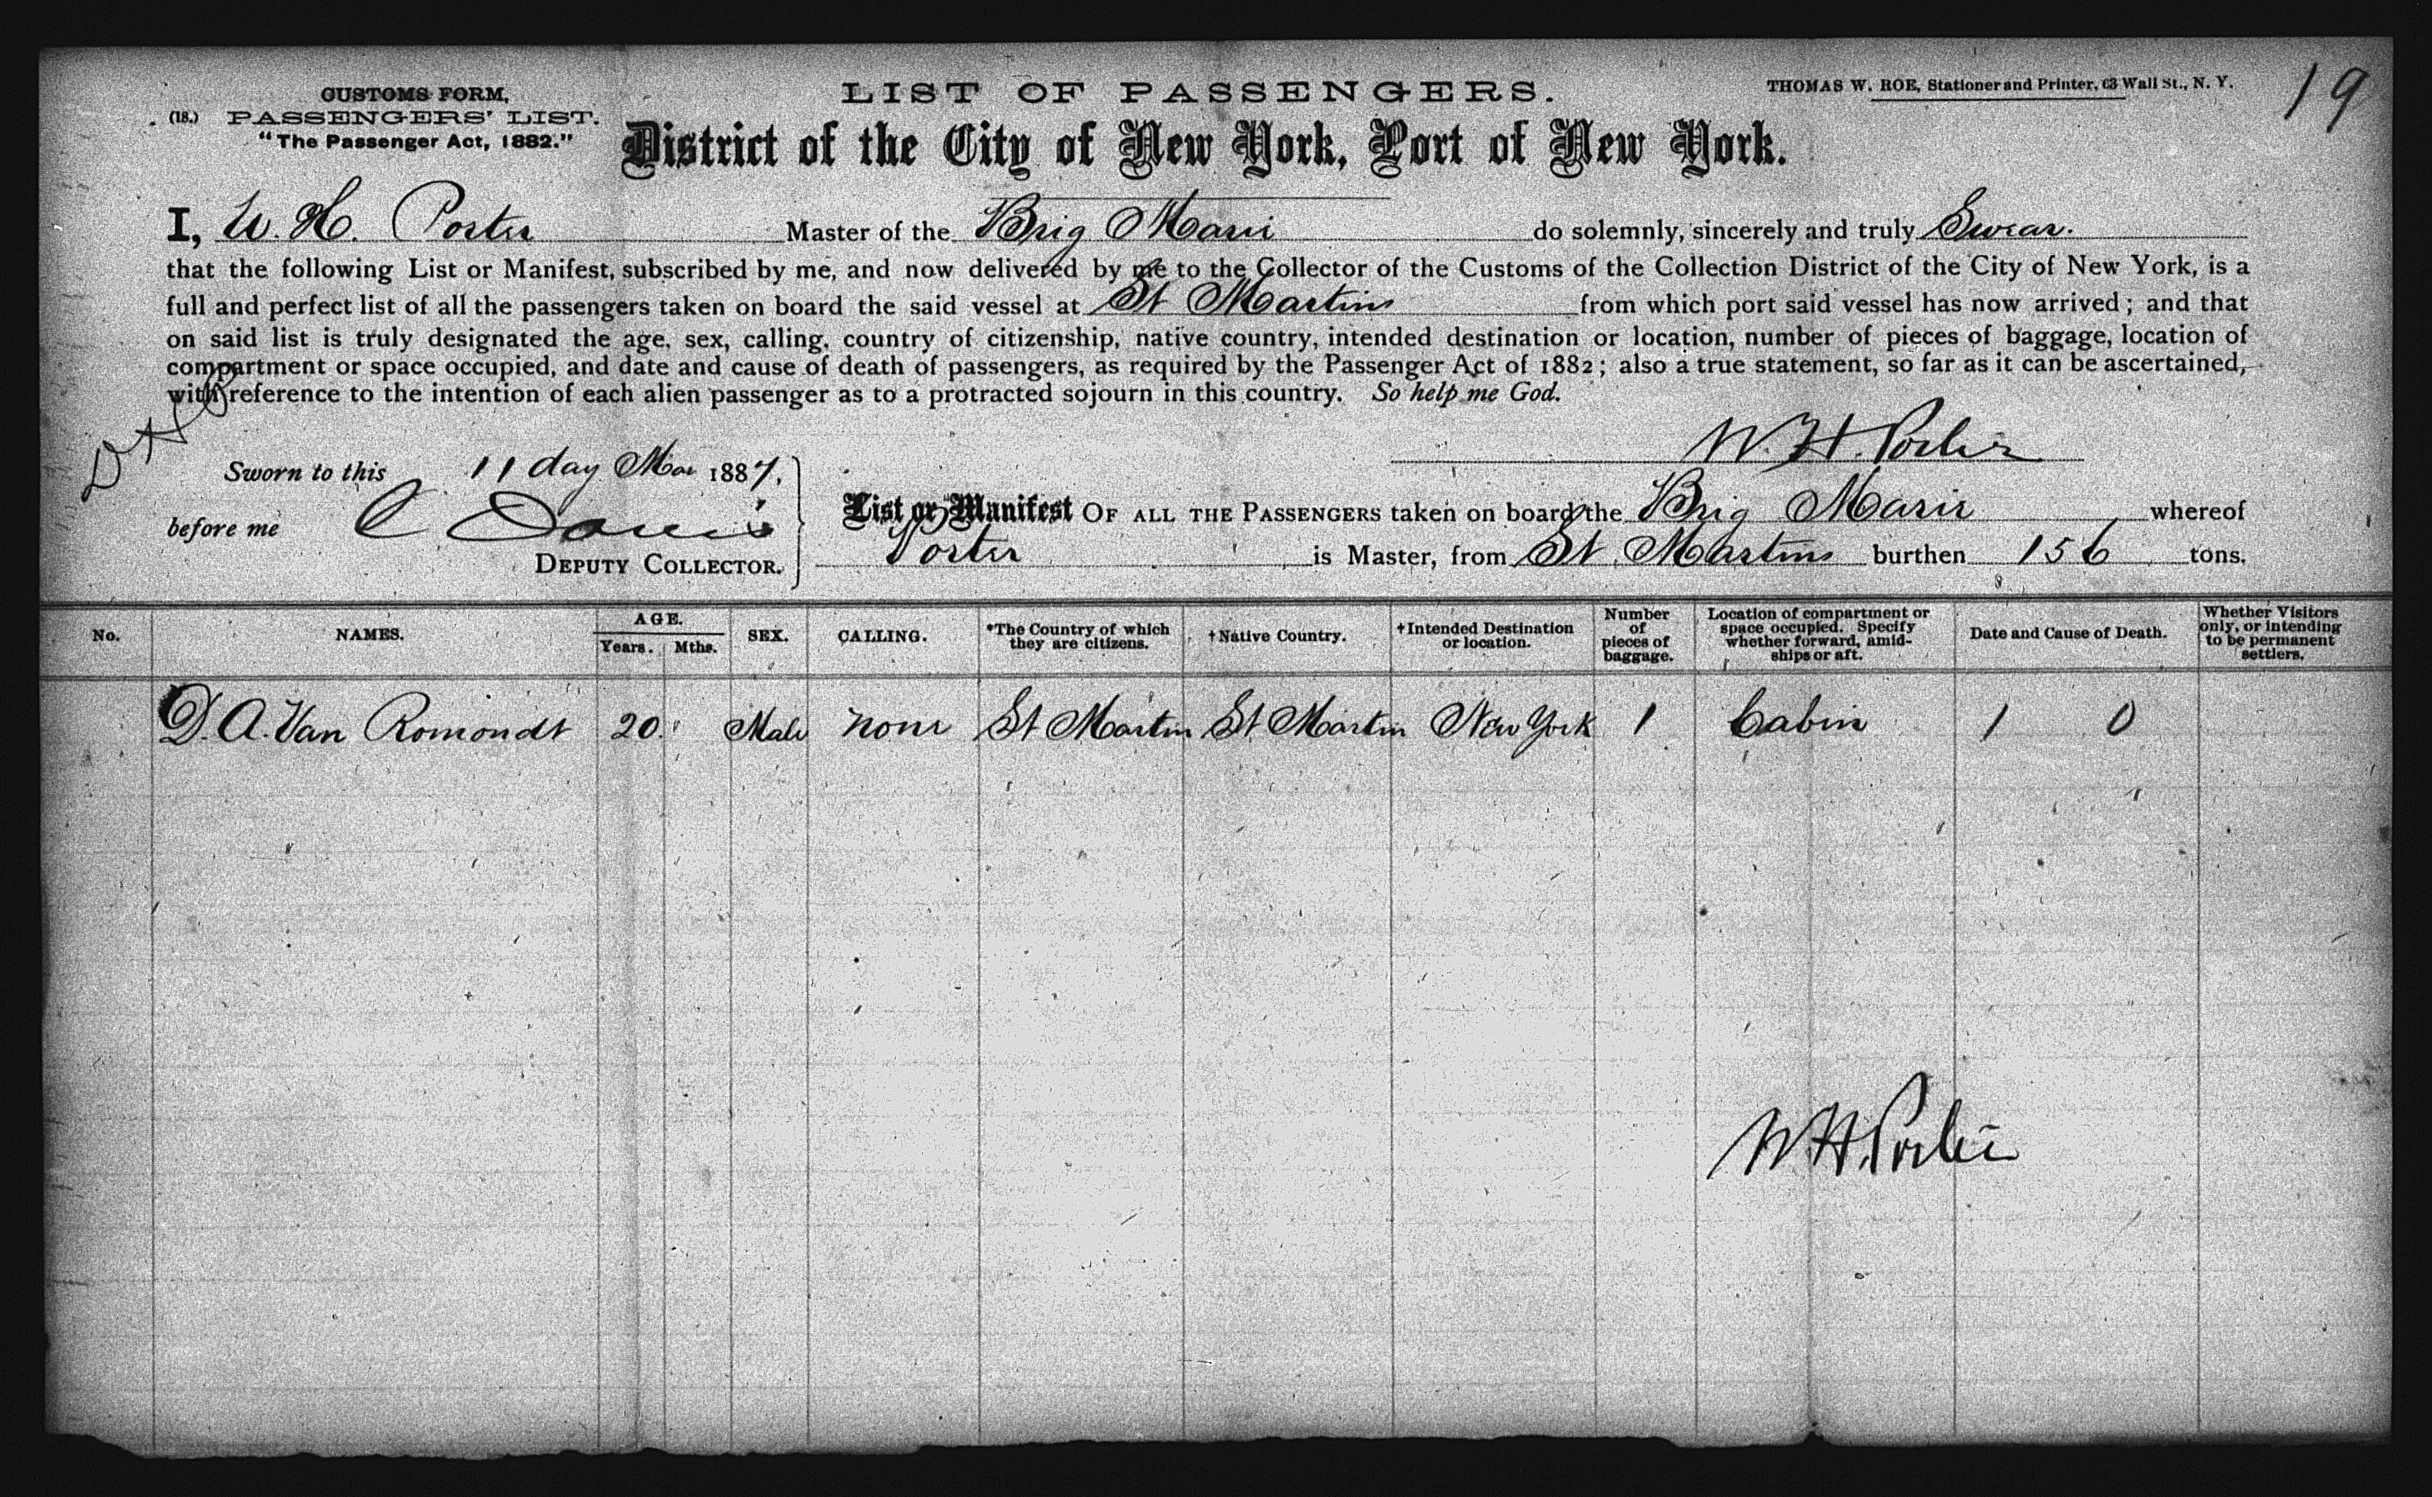 19
CUSTOMS FORM,
(18.) PASSENGERS' LIST.
"The Passenger Act, 1882."
LIST OF PASSENGERS.
THOMAS W. ROE, Stationer and Printer, 63 Wall St., N. Y.
District of the City of New York, Port of New York.
I, W. H. Porter Master of the Brig Marie do solemnly, sincerely and truly Swear.
that the following List or Manifest, subscribed by me, and now delivered by me to the Collector of the Customs of the Collection District of the City of New York, is a
full and perfect list of all the passengers taken on board the said vessel at St Martins from which port said vessel has now arrived; and that
on said list is truly designated the age, sex, calling, country of citizenship, native country, intended destination or location, number of pieces of baggage, location of
compartment or space occupied, and date and cause of death of passengers, as required by the Passenger Act of 1882; also a true statement, so far as it can be ascertained,
with reference to the intention of each alien passenger as to a protracted sojourn in this country. So help me God.
W. H. Porter
Sworn to this 11 day Mar 1887.
before me C Davis
DEPUTY COLLECTOR.
List or Manifest OF ALL THE PASSENGERS taken on board the Brig Marie whereof
Porter is Master, from St. Martins burthen 156 tons.
No. NAMES. AGE. Years. Mths. SEX. CALLING. *The Country of which they are citizens. †Native Country. †Intended Destination or location. Number of pieces of baggage. Location of compartment or space occupied. Specify whether forward, amidships or aft. Date and Cause of Death. Whether Visitors only, or intending to be permanent settlers.
D. A. Van Romondt 20 Male none St Martin St Martin New York 1 Cabin 1 0
W. H. Porter